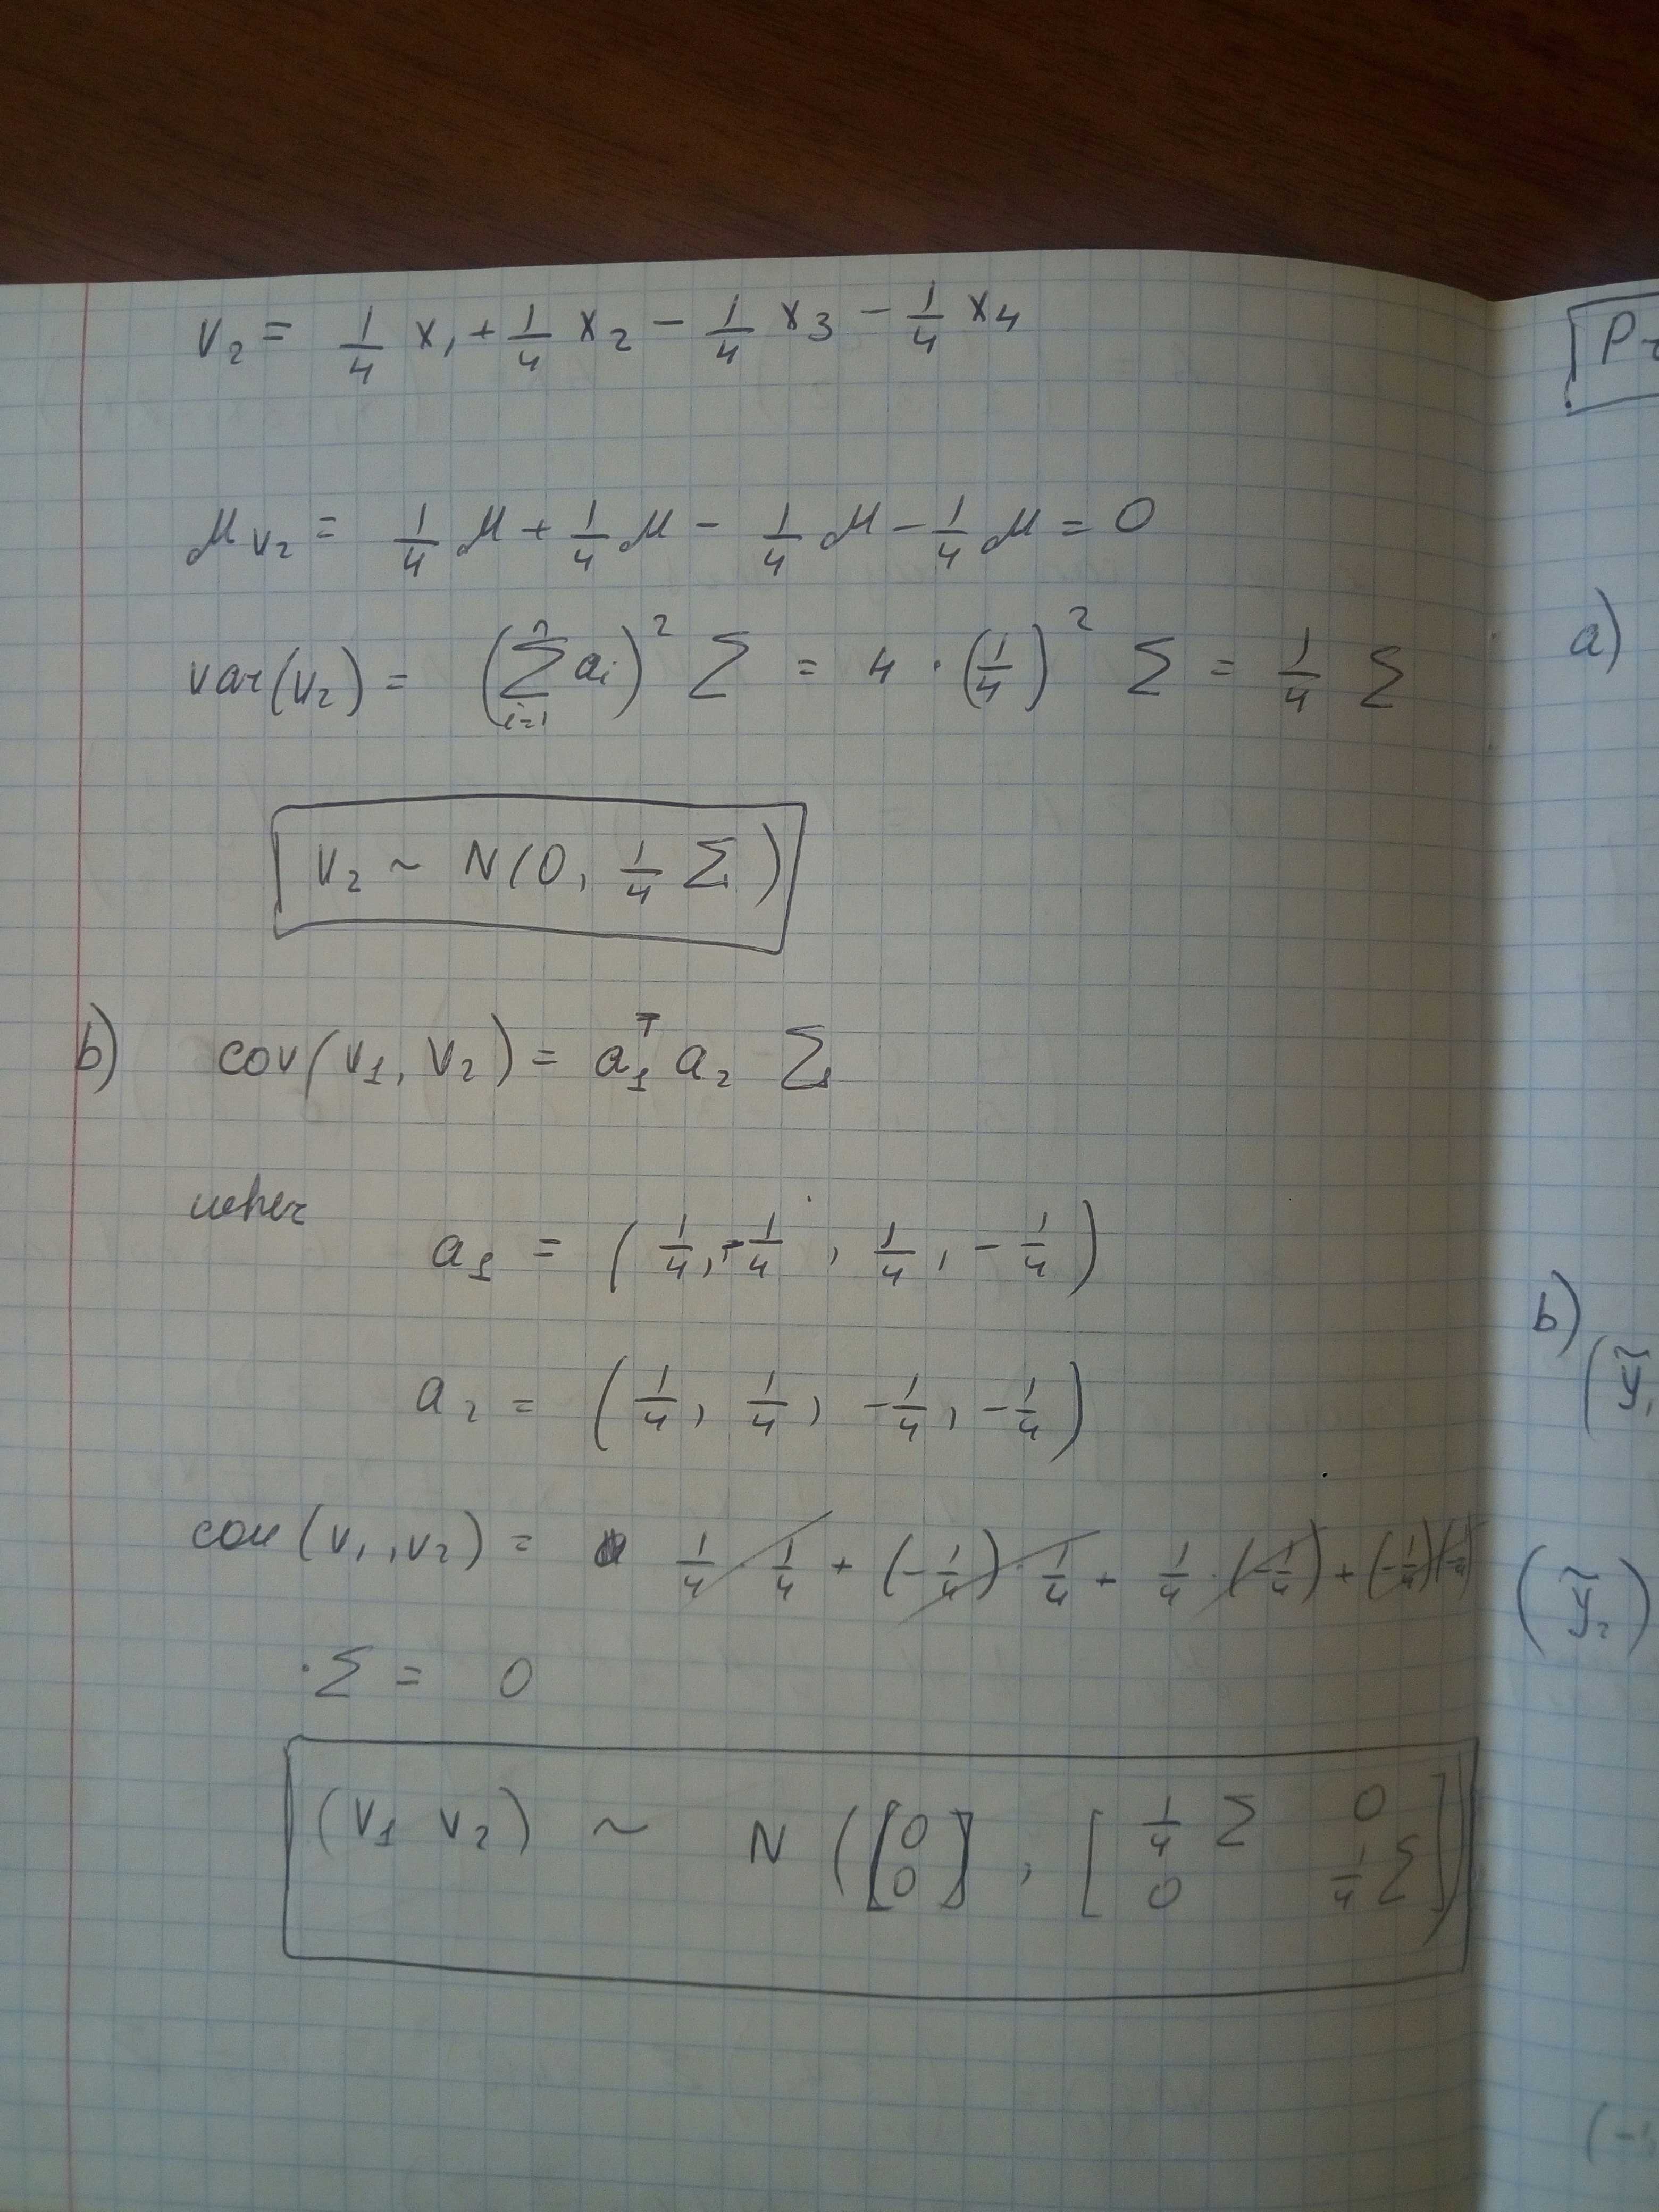 V₂ = 1/4 x₁ + 1/4 x₂ − 1/4 x₃ − 1/4 x₄
μ_V₂ = 1/4 μ + 1/4 μ − 1/4 μ − 1/4 μ = 0
var(V₂) = (∑_{i=1}^{n} aᵢ)² Σ = 4 · (1/4)² Σ = 1/4 Σ
V₂ ~ N(0, 1/4 Σ)
b) cov(V₁, V₂) = a₁ᵀ a₂ Σ
wher
a₁ = (1/4, −1/4, 1/4, −1/4)
a₂ = (1/4, 1/4, −1/4, −1/4)
cov(V₁, V₂) = 1/4 · 1/4 + (−1/4) · 1/4 + 1/4 · (−1/4) + (−1/4)(−1/4)
· Σ = 0
(V₁ V₂) ~ N([0 0], [1/4 Σ 0 0 1/4 Σ])
a)
b)
(ỹ₁
(ỹ₂)